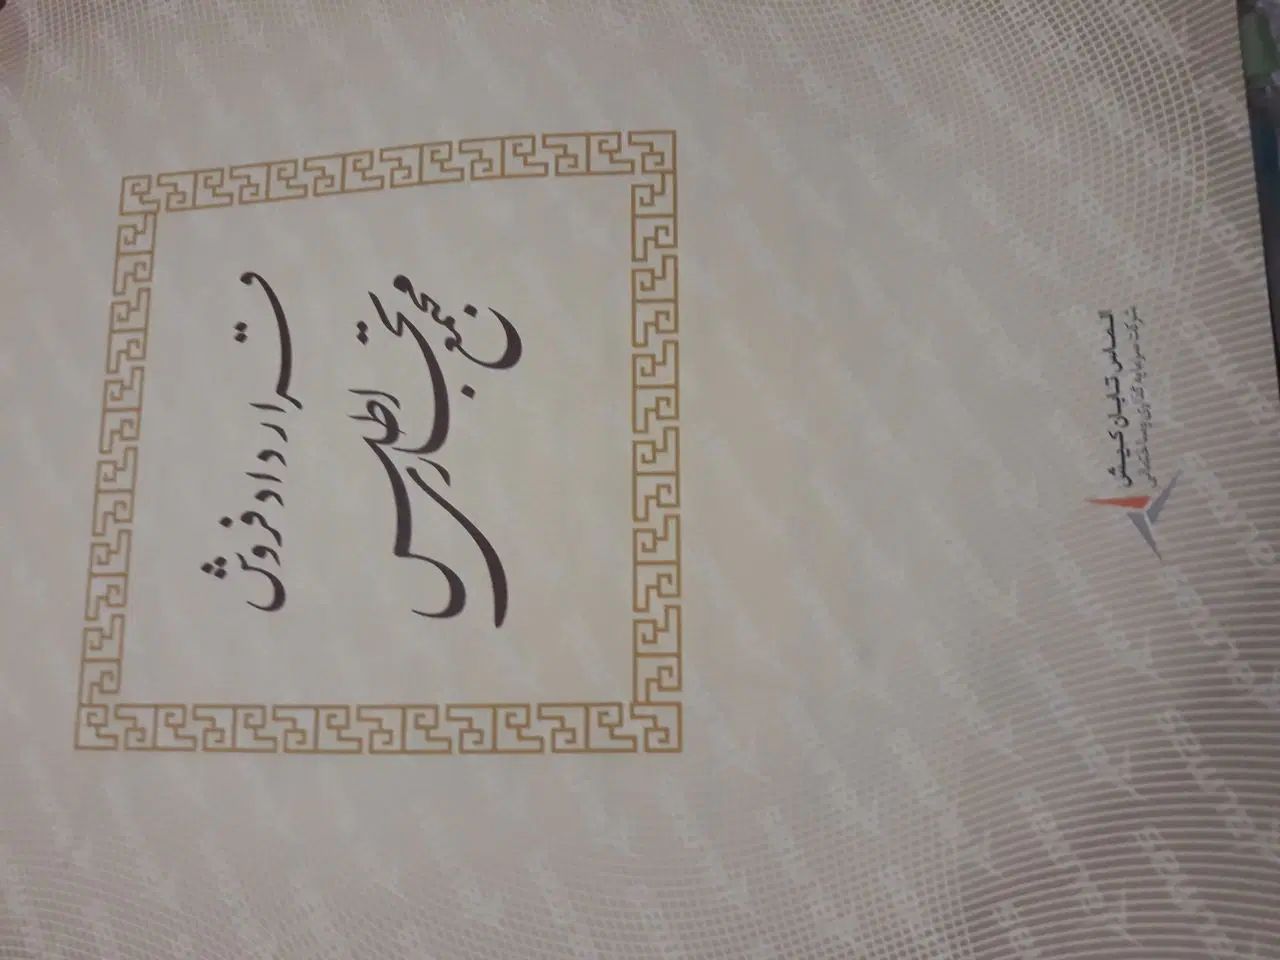 قرارداد فروش
مجتمع تجاری اطلس پارس
الماس تابان کیش
شرکت سرمایه گذاری و ساختمانی